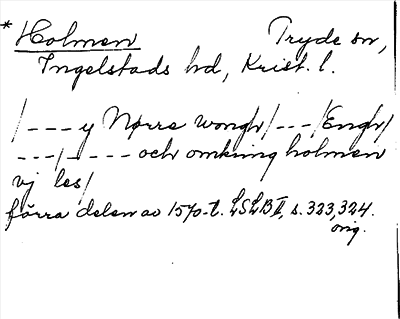 * Holmen Tryde sn,
Ingelstads hd, Krist. l.
/---y Nørre wongh/---/Engh/
---/---- och omkring holmen
vj les/
förra delen av 1570-t. LSLB II, s. 323, 324.
orig.